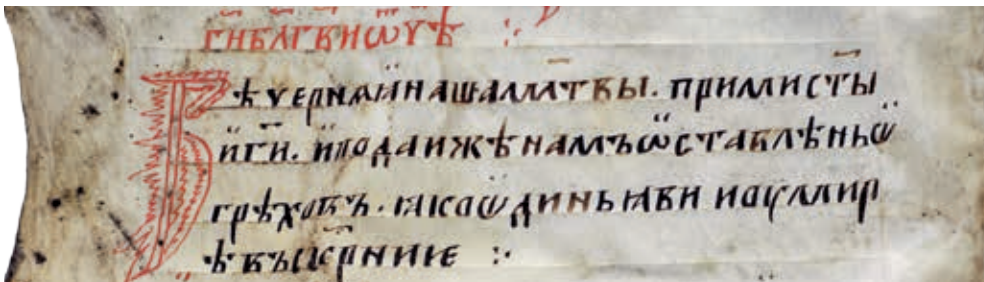 ги бл҃гви ѿчѣ :·
Вѣчерниӕ нашамл҃твы · прими ст҃ы
ї ги · ї подаи жѣ намъ ѡставлѣньѡ
грѣховъ · ꙗко ѡдинь ꙗви иоу мир
ѣ въскрниѥ :·